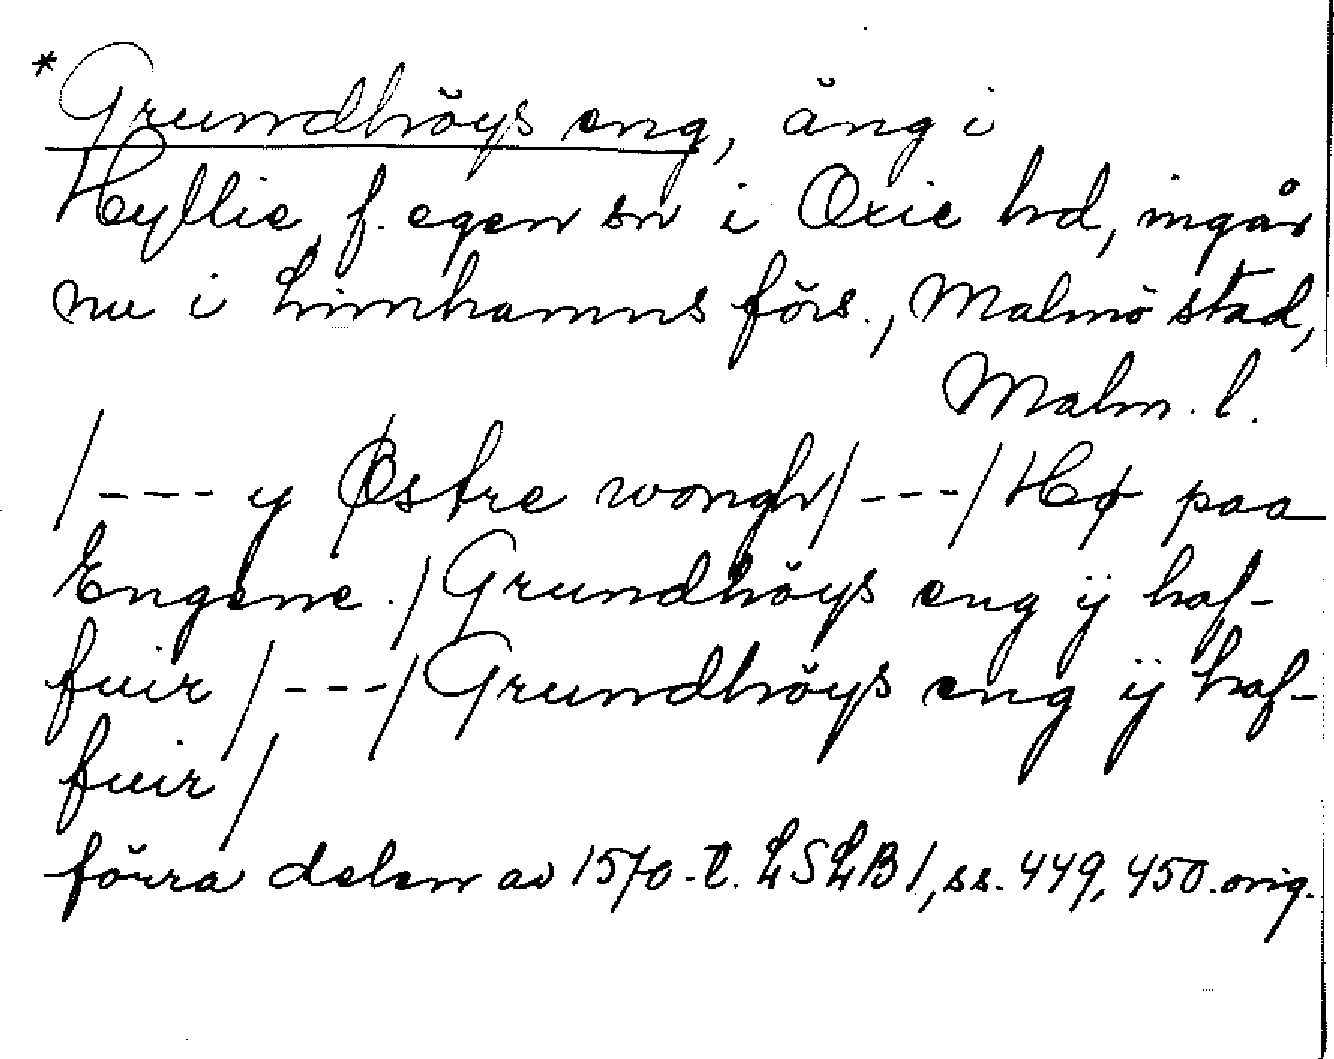 *Grundhöys eng, äng i
Hyllie, f. egen sn i Oxie hd, ingår
nu i Limhamns förs., Malmö stad,
Malm. l.
/--- y Østre wongh/---/Hø paa
Engene./Grundhöys eng ÿ haf-
fuir/---/Grundhöys eng ÿ haf-
fuir/
förra delen av 1570-t. LSLB 1, ss. 449, 450. orig.